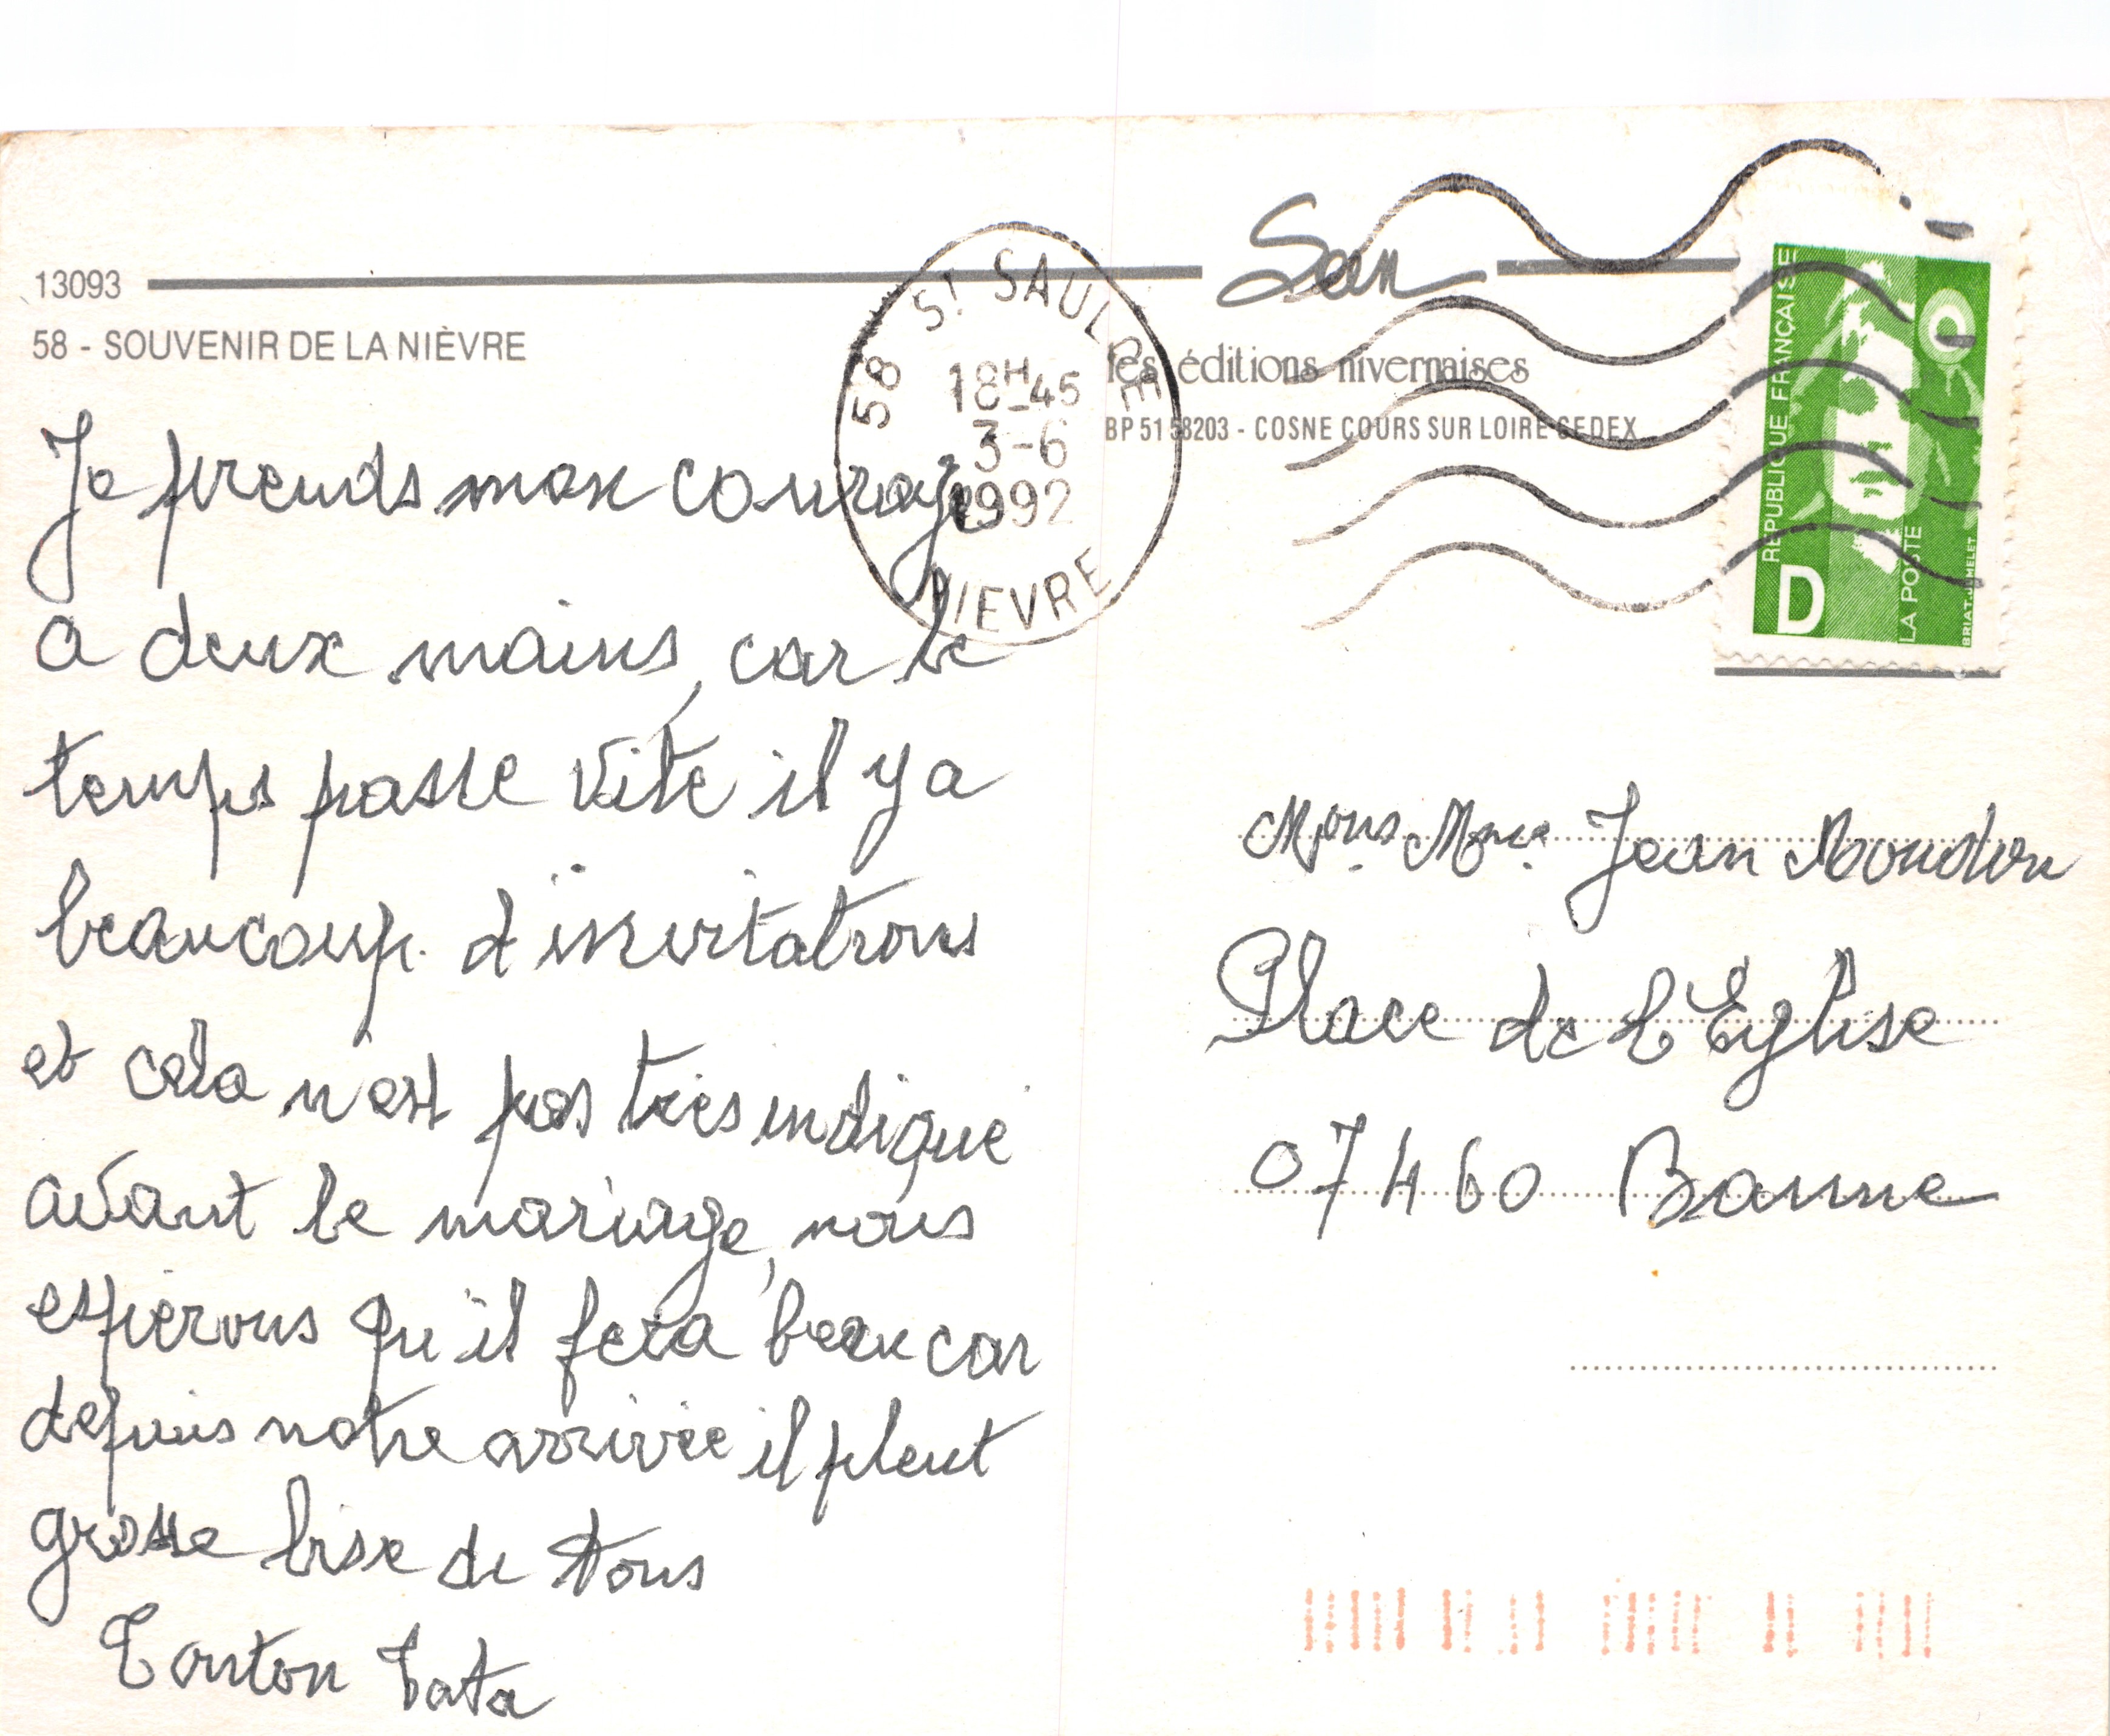 13093
58 - SOUVENIR DE LA NIÈVRE
Je prends mon courage
a deux mains, car le
temps passe vite il y a
beaucoup d'invitations
et cela n'est pas très indiqué
avant le mariage, nous
esperons qu'il fera beau car
depuis notre arrivée il pleut
grosse bise de tous
Tonton Tata
58 ST SAULGE
18H-45
3-6
1992
NIEVRE
les éditions nivernaises
BP 51 58203 - COSNE COURS SUR LOIRE CEDEX
RÉPUBLIQUE FRANÇAISE
D
LA POSTE
BRIAT.JUMELET
Mons Mme Jean
Place de l'Eglise
07460 Banne